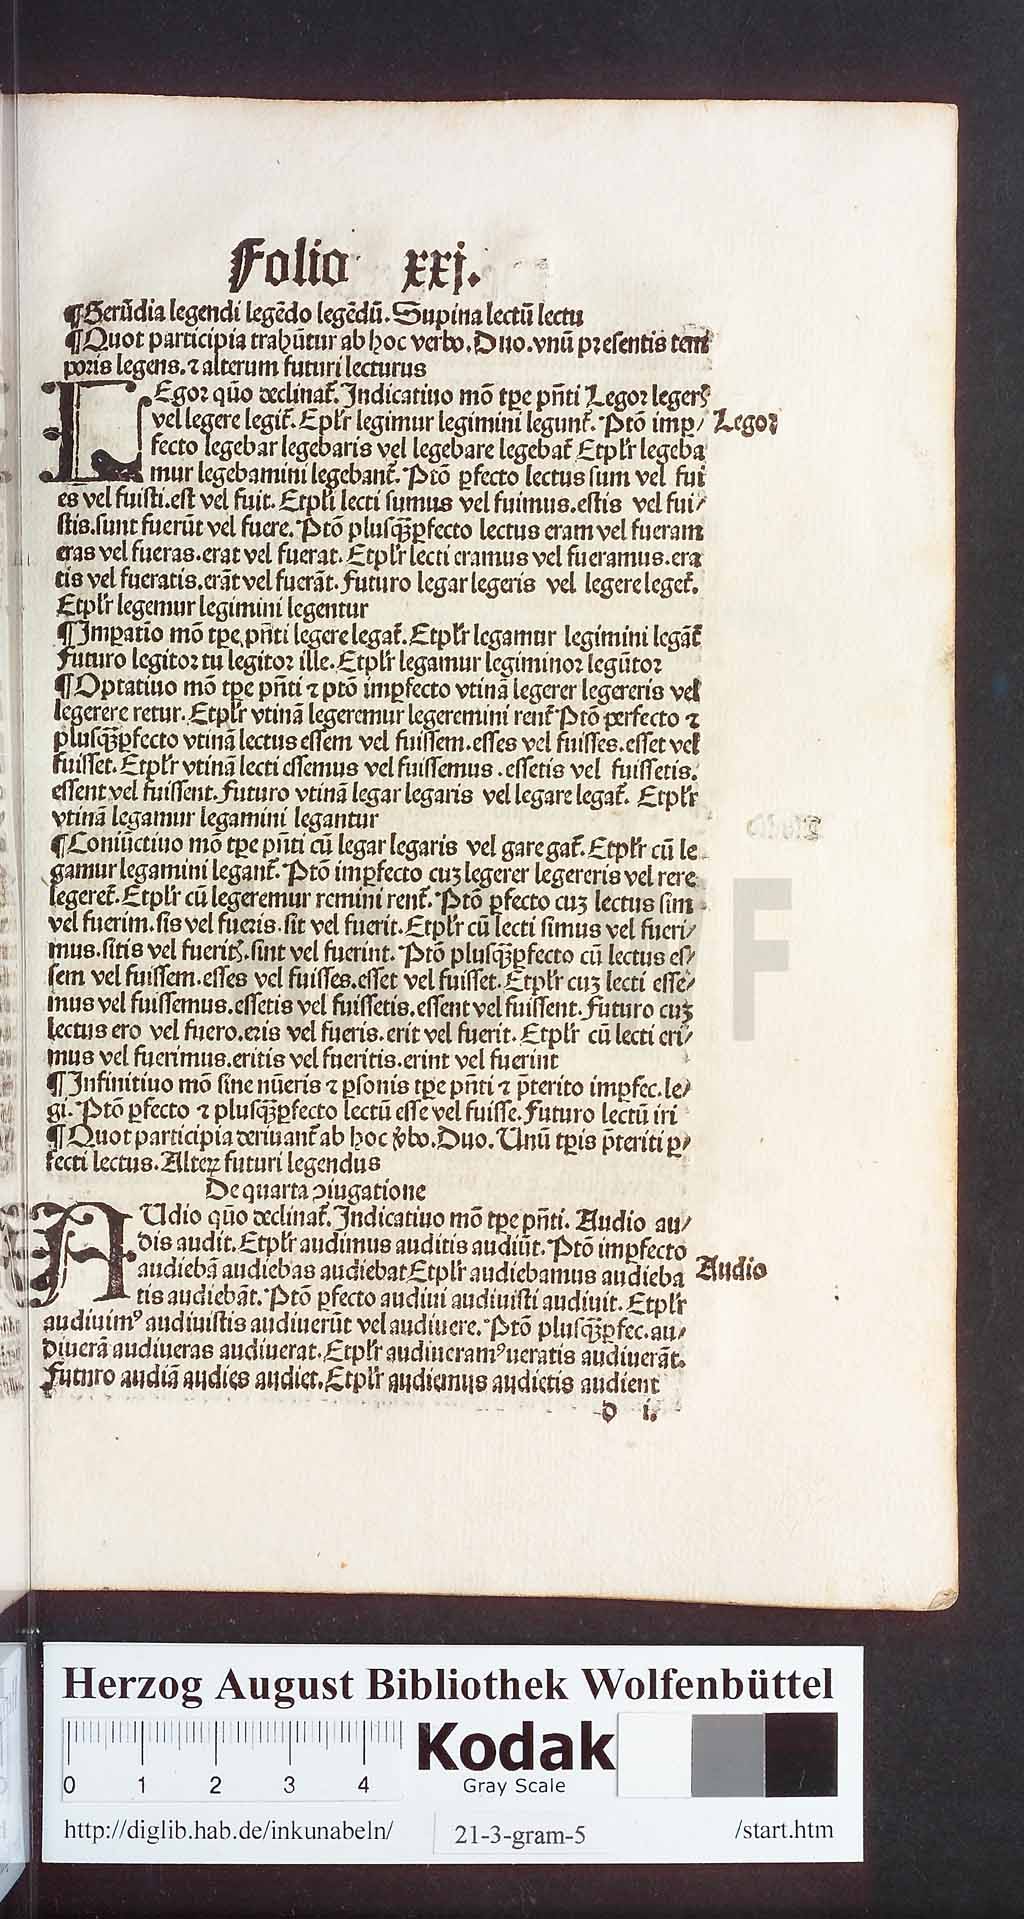 Folio xxj.
¶Gerūdia legendi legēdo legēdū. Supina lectū lectu
¶Quot participia trahūtur ab hoc verbo. Duo. vnū presentis tem
poris legens. ⁊ alterum futuri lecturus
LEgor quō declinat̄. Indicatiuo mō tꝑe pn̄ti Legor legerꝭ
vel legere legit̄. Etpl̄r legimur legimini legunt̄. Ptō imꝑ/
Legor
fecto legebar legebaris vel legebare legebat̄ Etpl̄r legeba
mur legebamini legebant̄. Ptō ꝑfecto lectus sum vel fui
es vel fuisti. est vel fuit. Etpl̄r lecti sumus vel fuimus. estis vel fui/
stis. sunt fuerūt vel fuere. Ptō plusꝙ̄ꝑfecto lectus eram vel fueram
eras vel fueras. erat vel fuerat. Etpl̄r lecti eramus vel fueramus. era
tis vel fueratis. erāt vel fuerāt. Futuro legar legeris vel legere leget̄.
Etpl̄r legemur legimini legentur
¶Imꝑatiō mō tꝑe pn̄ti legere legat̄. Etpl̄r legamur legimini legāt̄
Futuro legitor tu legitor ille. Etpl̄r legamur legiminor legūtor
¶Optatiuo mō tꝑe pn̄ti ⁊ ptō imꝑfecto vtinā legerer legereris vel
legerere retur. Etpl̄r vtinā legeremur legeremini rent̄ Ptō perfecto ⁊
plusꝙ̄ꝑfecto vtinā lectus essem vel fuissem. esses vel fuisses. esset vel
fuisset. Etpl̄r vtinā lecti essemus vel fuissemus. essetis vel fuissetis.
essent vel fuissent. Futuro vtinā legar legaris vel legare legat̄. Etpl̄r
vtinā legamur legamini legantur
¶Coniūctiuo mō tꝑe pn̄ti cū legar legaris vel gare gat̄. Etpl̄r cū le
gamur legamini legant̄. Ptō imꝑfecto cuz legerer legereris vel rere
legeret̄. Etpl̄r cū legeremur remini rent̄. Ptō ꝑfecto cuz lectus sim
vel fuerim. sis vel fueris. sit vel fuerit. Etpl̄r cū lecti simus vel fueri/
mus. sitis vel fueritꝭ. sint vel fuerint. Ptō plusꝙ̄ꝑfecto cū lectus es/
sem vel fuissem. esses vel fuisses. esset vel fuisset. Etpl̄r cuz lecti esse/
mus vel fuissemus. essetis vel fuissetis. essent vel fuissent. Futuro cuz
lectus ero vel fuero. eris vel fueris. erit vel fuerit. Etpl̄r cū lecti eri/
mus vel fuerimus. eritis vel fueritis. erint vel fuerint
¶Infinitiuo mō sine nūeris ⁊ ꝑsonis tꝑe pn̄ti ⁊ p̄terito imꝑfec. le/
gi. Ptō ꝑfecto ⁊ plusꝙ̄ꝑfecto lectū esse vel fuisse. Futuro lectū iri
¶Quot participia deriuant̄ ab hoc v̄bo. Duo. Unū tꝑis p̄teriti ꝑ/
fecti lectus. Alteꝝ futuri legendus
De quarta ꝯiugatione
AUdio quō declinat̄. Indicatiuo mō tꝑe pn̄ti. Audio au/
dis audit. Etpl̄r audimus auditis audiūt. Ptō imꝑfecto
audiebā audiebas audiebat Etpl̄r audiebamus audieba
Audio
tis audiebāt. Ptō ꝑfecto audiui audiuisti audiuit. Etpl̄r
audiuimꝰ audiuistis audiuerūt vel audiuere. Ptō plusꝙ̄ꝑfec. au/
diuerā audiueras audiuerat. Etpl̄r audiueramꝰ ueratis audiuerāt.
Futuro audiā audies audiet. Etpl̄r audiemus audietis audient
d i.
Herzog August Bibliothek Wolfenbüttel
0 1 2 3 4
Kodak
Gray Scale
http://diglib.hab.de/inkunabeln/ 21-3-gram-5 /start.htm